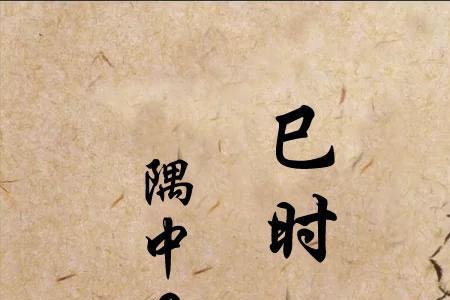 巳时
隅中